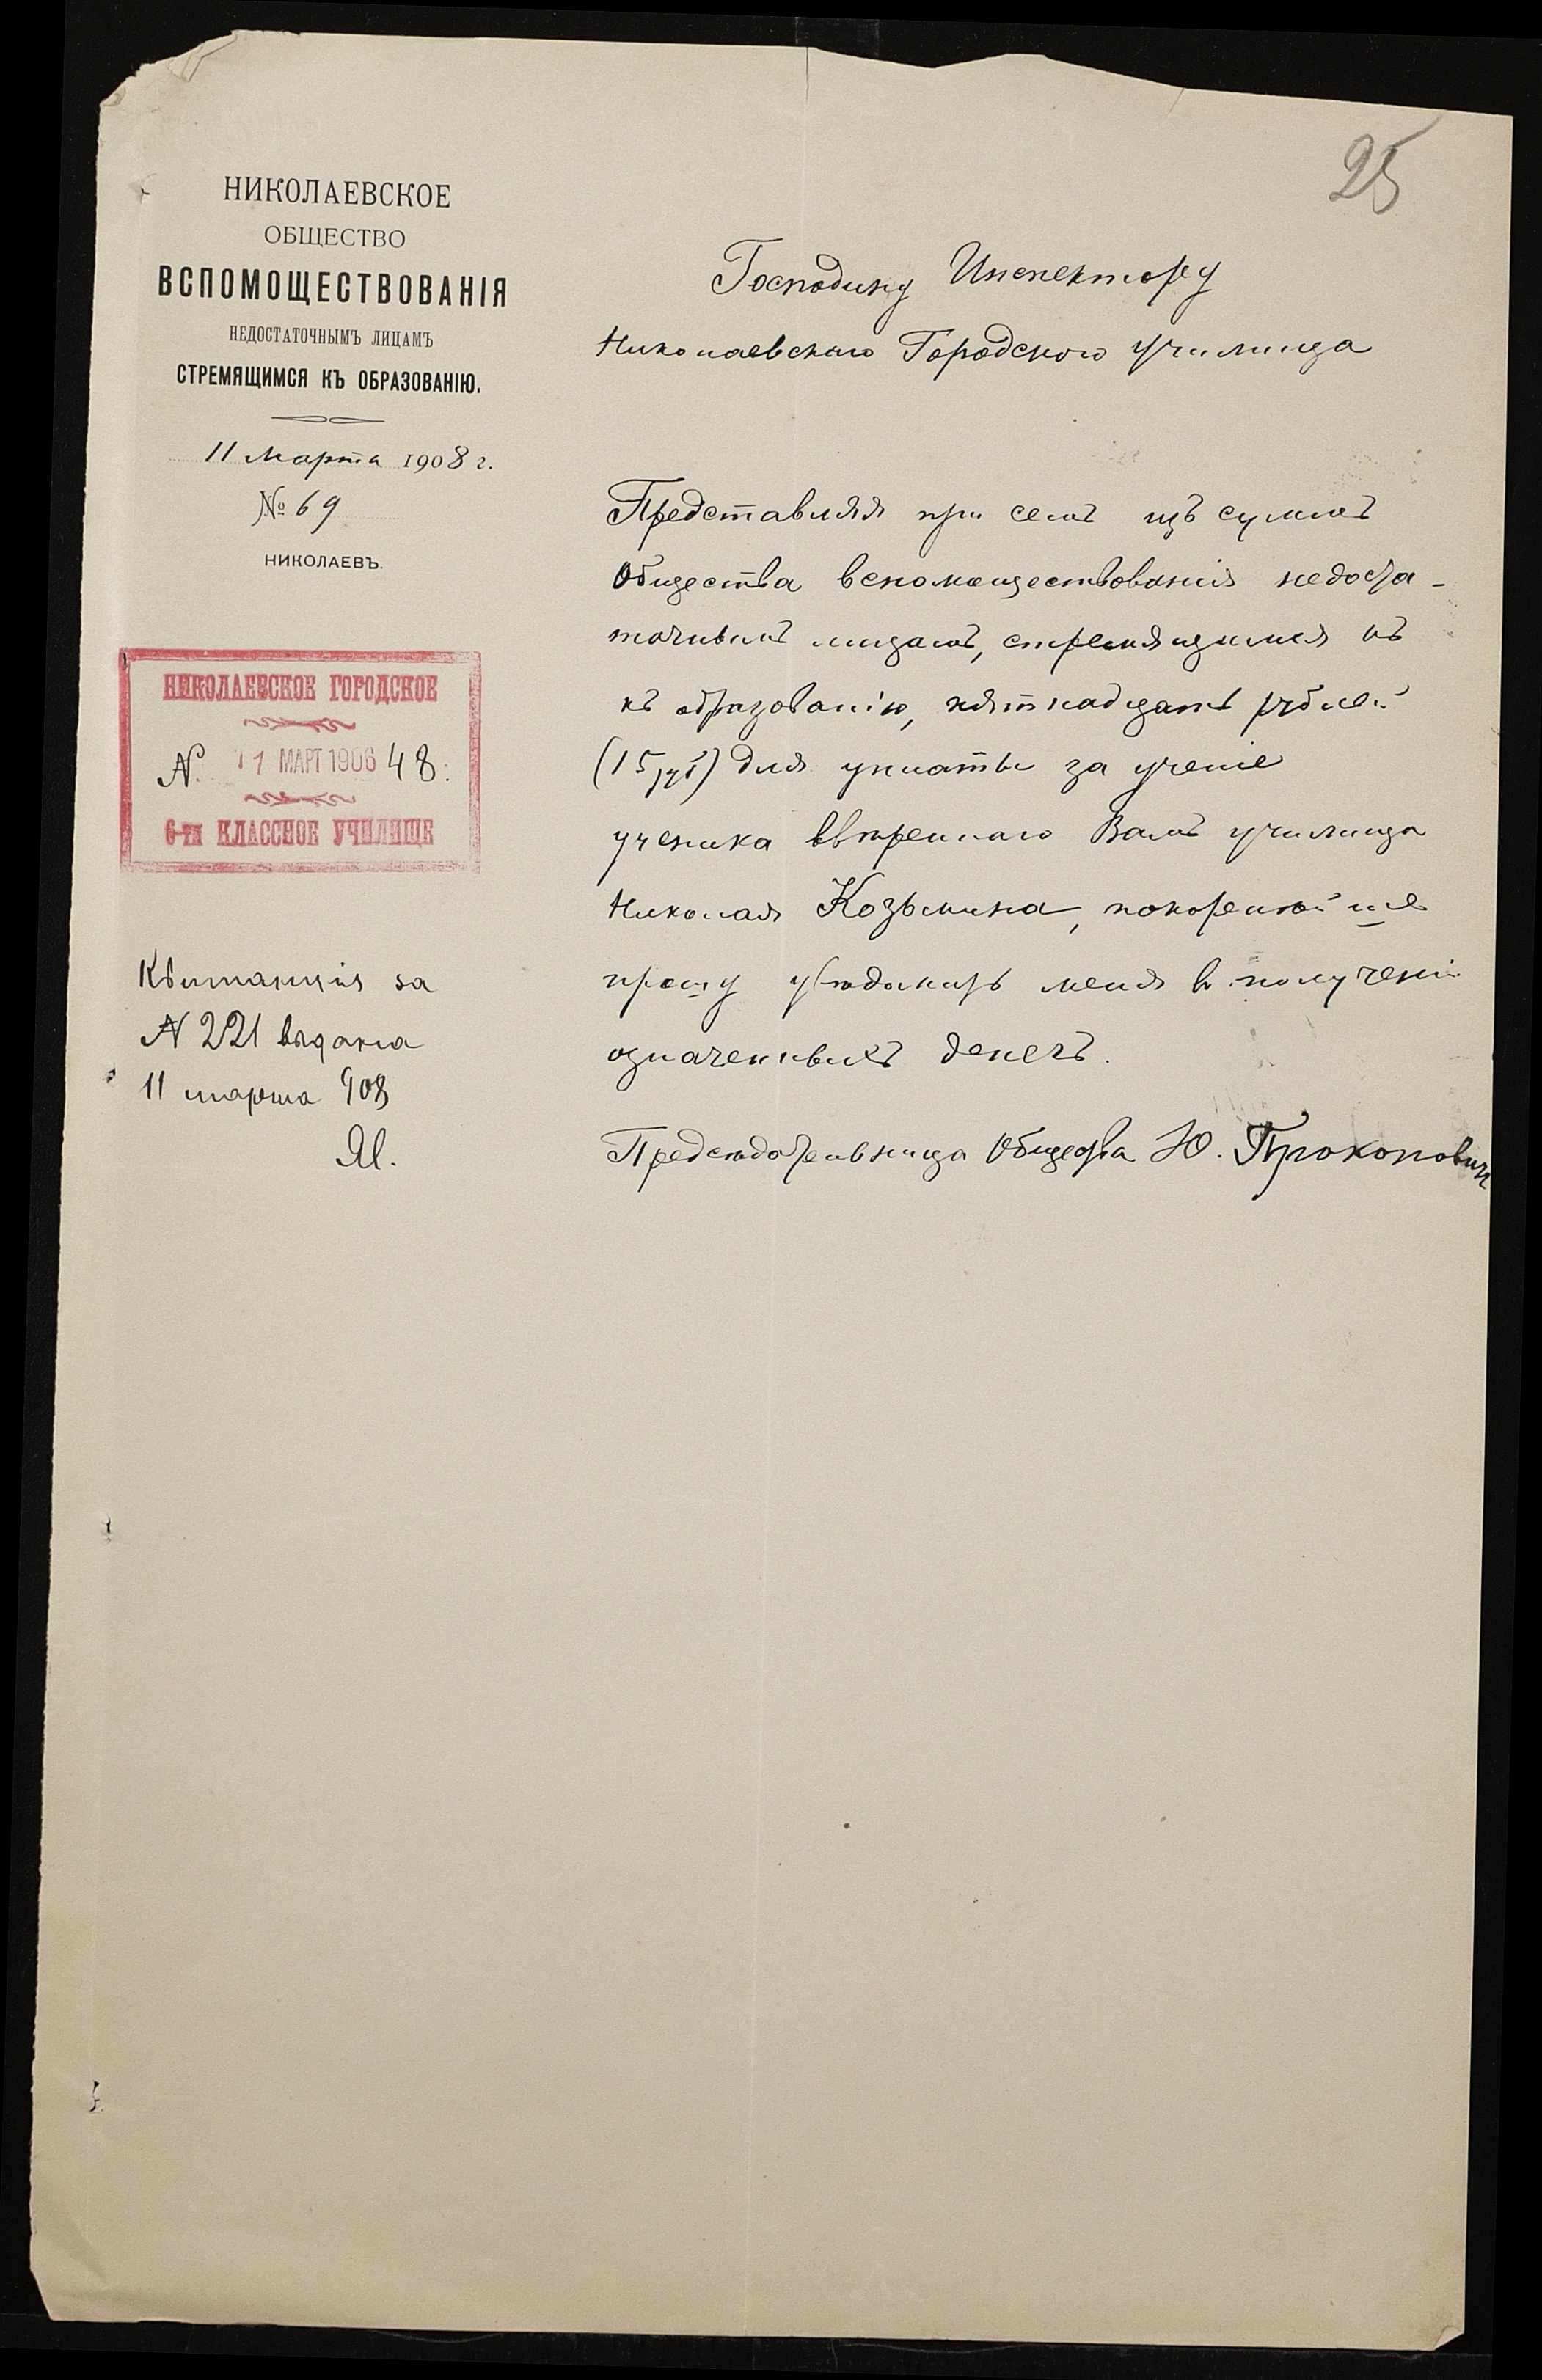 25
НИКОЛАЕВСКОЕ
ОБЩЕСТВО
ВСПОМОЩЕСТВОВАНІЯ
НЕДОСТАТОЧНЫМЪ ЛИЦАМЪ
СТРЕМЯЩИМСЯ КЪ ОБРАЗОВАНІЮ.
11 Марта 1908 г.
№ 69
НИКОЛАЕВЪ.
НИКОЛАЕВСКОЕ ГОРОДСКОЕ
N. 11 МАРТ 1906 48.
6-ти КЛАССНОЕ УЧИЛИЩЕ
Квитанція за
N 221 выдана
11 марта 908
Господину Инспектору
Николаевскаго Городского училища
Представляя при семъ изъ суммъ
Общества вспомоществованія недоста-
точнымъ лицамъ, стремящимся къ
къ образованію, пятнадцать рублей
(15 руб) для уплаты за ученіе
ученика ввѣреннаго Вамъ училища
Николая Козьмина, покорнѣйше
прошу увѣдомить меня въ полученіи
означенныхъ денегъ.
Предсѣдательница Общества Ю. Прокопович